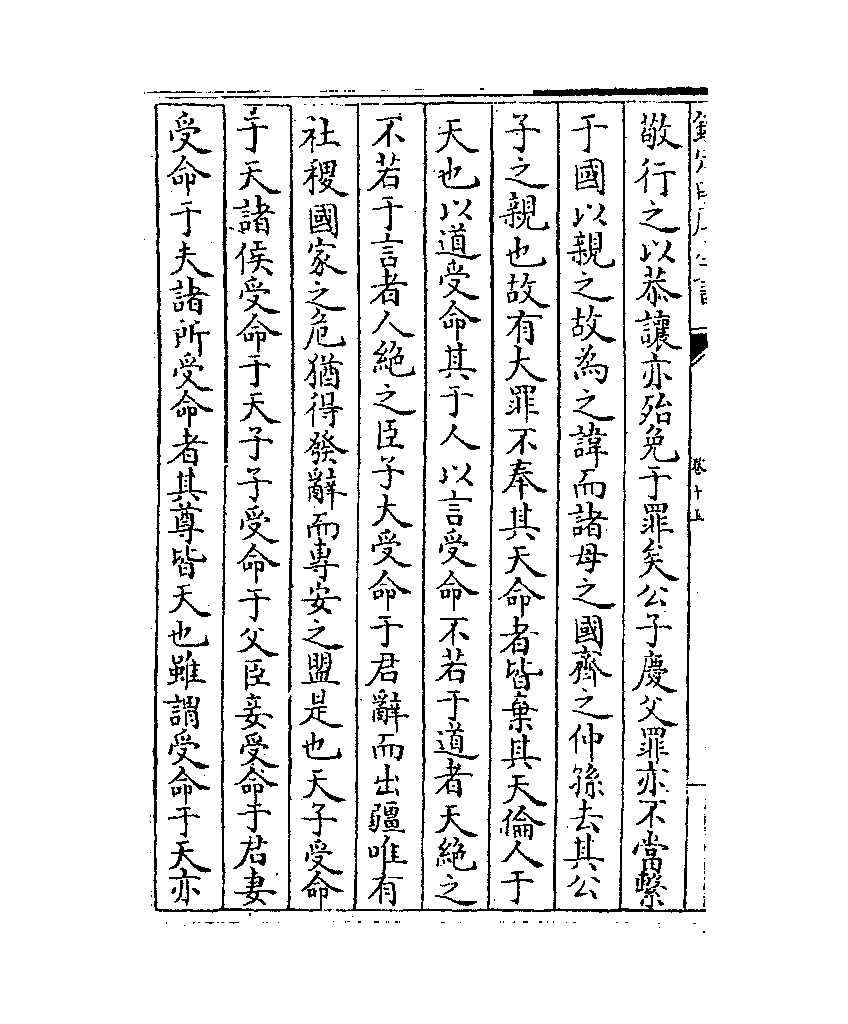 敬行之以恭讓亦殆免于罪矣公子慶父罪亦不當繫
于國以親之故為之諱而諸母之國齊之仲孫去其公
子之親也故有大罪不奉其天命者皆棄其天倫人于
天也以道受命其于人以言受命不若于道者天絶之
不若于言者人絶之臣子大受命于君辭而出疆唯有
社稷國家之危猶得發辭而專安之盟是也天子受命
于天諸侯受命于天子子受命于父臣妾受命于君妻
受命于夫諸所受命者其尊皆天也雖謂受命于天亦